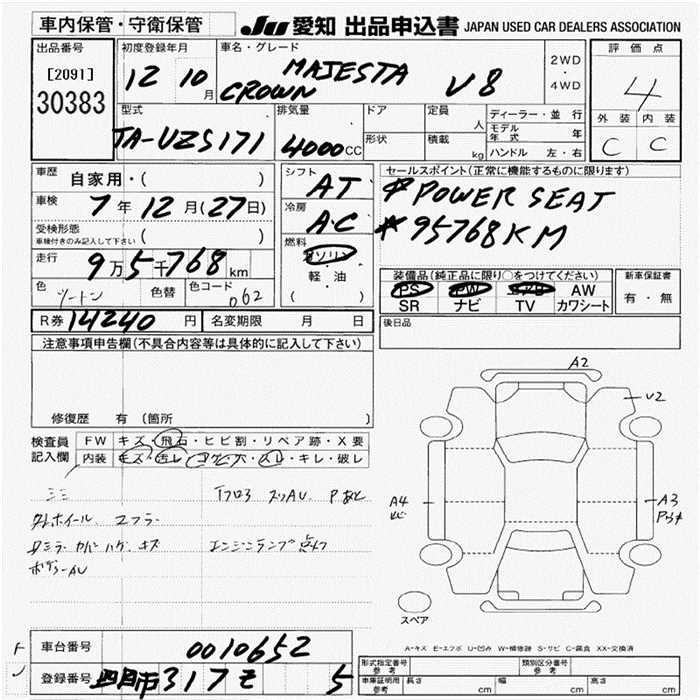 車内保管・守衛保管 JU 愛知 出品申込書 JAPAN USED CAR DEALERS ASSOCIATION
出品番号 初度登録年月 車名・グレード 評価点
[2091] 12 10月 MAJESTA 2WD
30383 CROWN V8 ・ 4WD 4
型式 排気量 ドア 定員 人 ディーラー・並行 外装 内装
TA-UZS171 4000CC 形状 積載 kg モデル年式 年 C C
ハンドル 左・右
車歴 自家用・( ) シフト AT セールスポイント(正常に機能するものに限ります)
車検 7年12月(27日) 冷房 AC POWER SEAT
受検形態 ( ) *95768KM
車検付きのみ記入して下さい
燃料 ガソリン
走行 9万5千768km 軽・油 装備品(純正品に限り○をつけてください) 新車保証書
色 ツートン 色替 色コード 062 ( ) PS PW AW 有・無
SR ナビ TV カワシート
R券 14240円 名変期限 月 日 後日品
注意事項申告欄(不具合内容等は具体的に記入して下さい)
A2
V2
修復歴 有 (箇所 )
検査員 FW キズ・飛石・ヒビ割・リペア跡・X要
記入欄 内装 キズ・汚レ・コゲ穴・スレ・キレ・破レ
A4 A3
エンジンランプ点灯
スペア
A-キズ E-エクボ U-凹み W-補修跡 S-サビ C-腐食 XX-交換済
車台番号 0010652
登録番号 四日市317 5
形式指定番号 参考 類別区分番号 参考
車庫証明用 参考 長さ cm 幅 cm 高さ cm